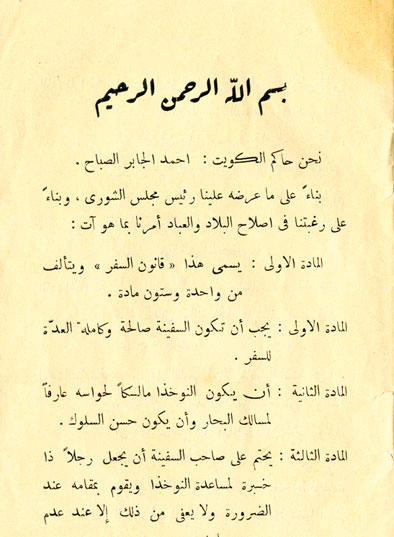 بسم الله الرحمن الرحيم
نحن حاكم الكويت : احمد الجابر الصباح .
بناءً على ما عرضه علينا رئيس مجلس الشورى ، وبناءً
على رغبتنا فى اصلاح البلاد والعباد أمرنا بما هو آت :
المادة الاولى : يسمى هذا « قانون السفر » ويتألف
من واحدة وستون مادة .
المادة الاولى : يجب أن تكون السفينة صالحة وكاملة العدّة
للسفر .
المادة الثانية : أن يكون النوخذا مالكاً لحواسه عارفاً
لمسالك البحار وأن يكون حسن السلوك .
المادة الثالثة : يحتم على صاحب السفينة أن يجعل رجلاً ذا
خبرة لمساعدة النوخذا ويقوم بمقامه عند
الضرورة ولا يعفى من ذلك إلا عند عدم